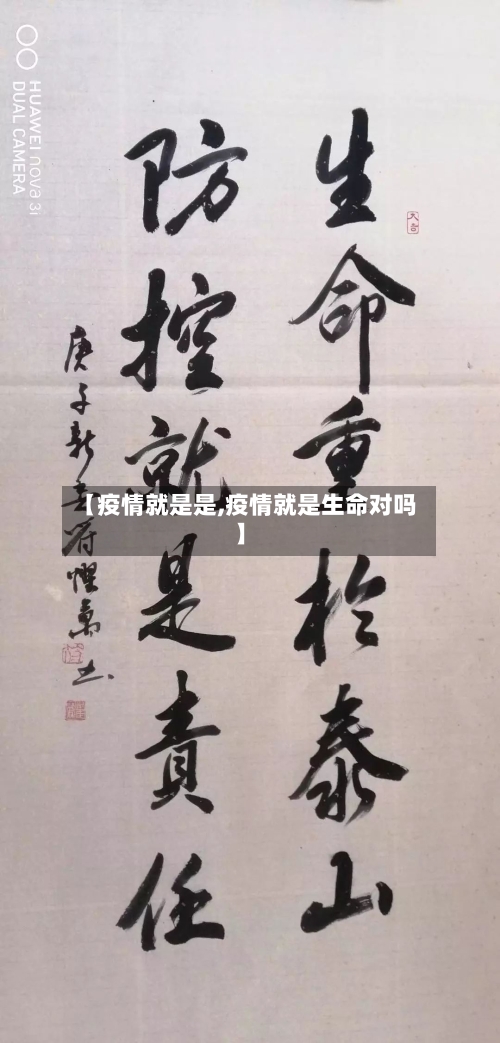 生命重於泰山
防控就是責任
庚子新春
書
【疫情就是是,疫情就是生命对吗
】
HUAWEI nova 3i
DUAL CAMERA